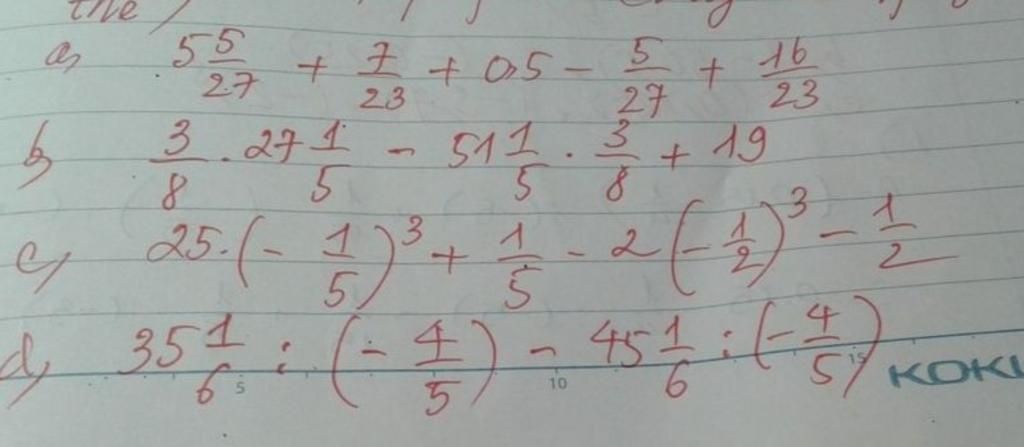 the
a, 5 5/27 + 7/23 + 0,5 - 5/27 + 16/23
b, 3/8 . 27 1/5 - 51 1/5 . 3/8 + 19
c, 25.(- 1/5)^3 + 1/5 - 2(- 1/2)^3 - 1/2
d, 35 1/6 : (- 4/5) - 45 1/6 : (- 4/5)
5 10 15 KOKU